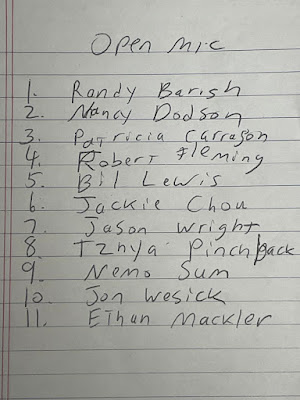 Open mic
1. Randy Barish
2. Nancy Dodson
3. Patricia Carragon
4. Robert Fleming
5. Bil Lewis
6. Jackie Chou
7. Jason Wright
8. Tznya Pinchback
9. Nemo Sum
10. Jon Wesick
11. Ethan Mackler